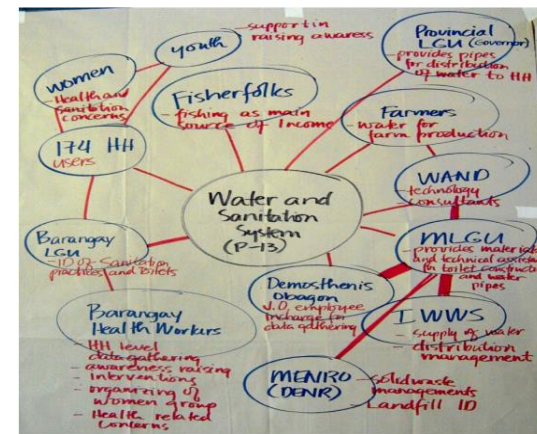 youth
- support in
raising awaress
Provincial
LGU (Governor)
- provides pipes
for distribution
of water to HH
women
- Health and
sanitation
concerns
Fisherfolks
- fishing as main
source of Income
Farmers
- water for
farm production
174 HH
users
WAND
- technology
consultants
Water and
Sanitation
System
(P-13)
Barangay
LGU
- ID of Sanitation
practices and toilets
MLGU
- provides materials
and technical assistan
for toilet constructi
and water
pipes
Demosthenis
Obagon
J.O. employee
incharge for
data gathering
Barangay
Health Workers
- HH level
data gathering
- awareness raising
- interventions
- organizing of
women group
- Health related
concerns
IWWS
- supply of water
- distribution
management
MENRO
(DENR)
- solid waste
managements
Landfill ID